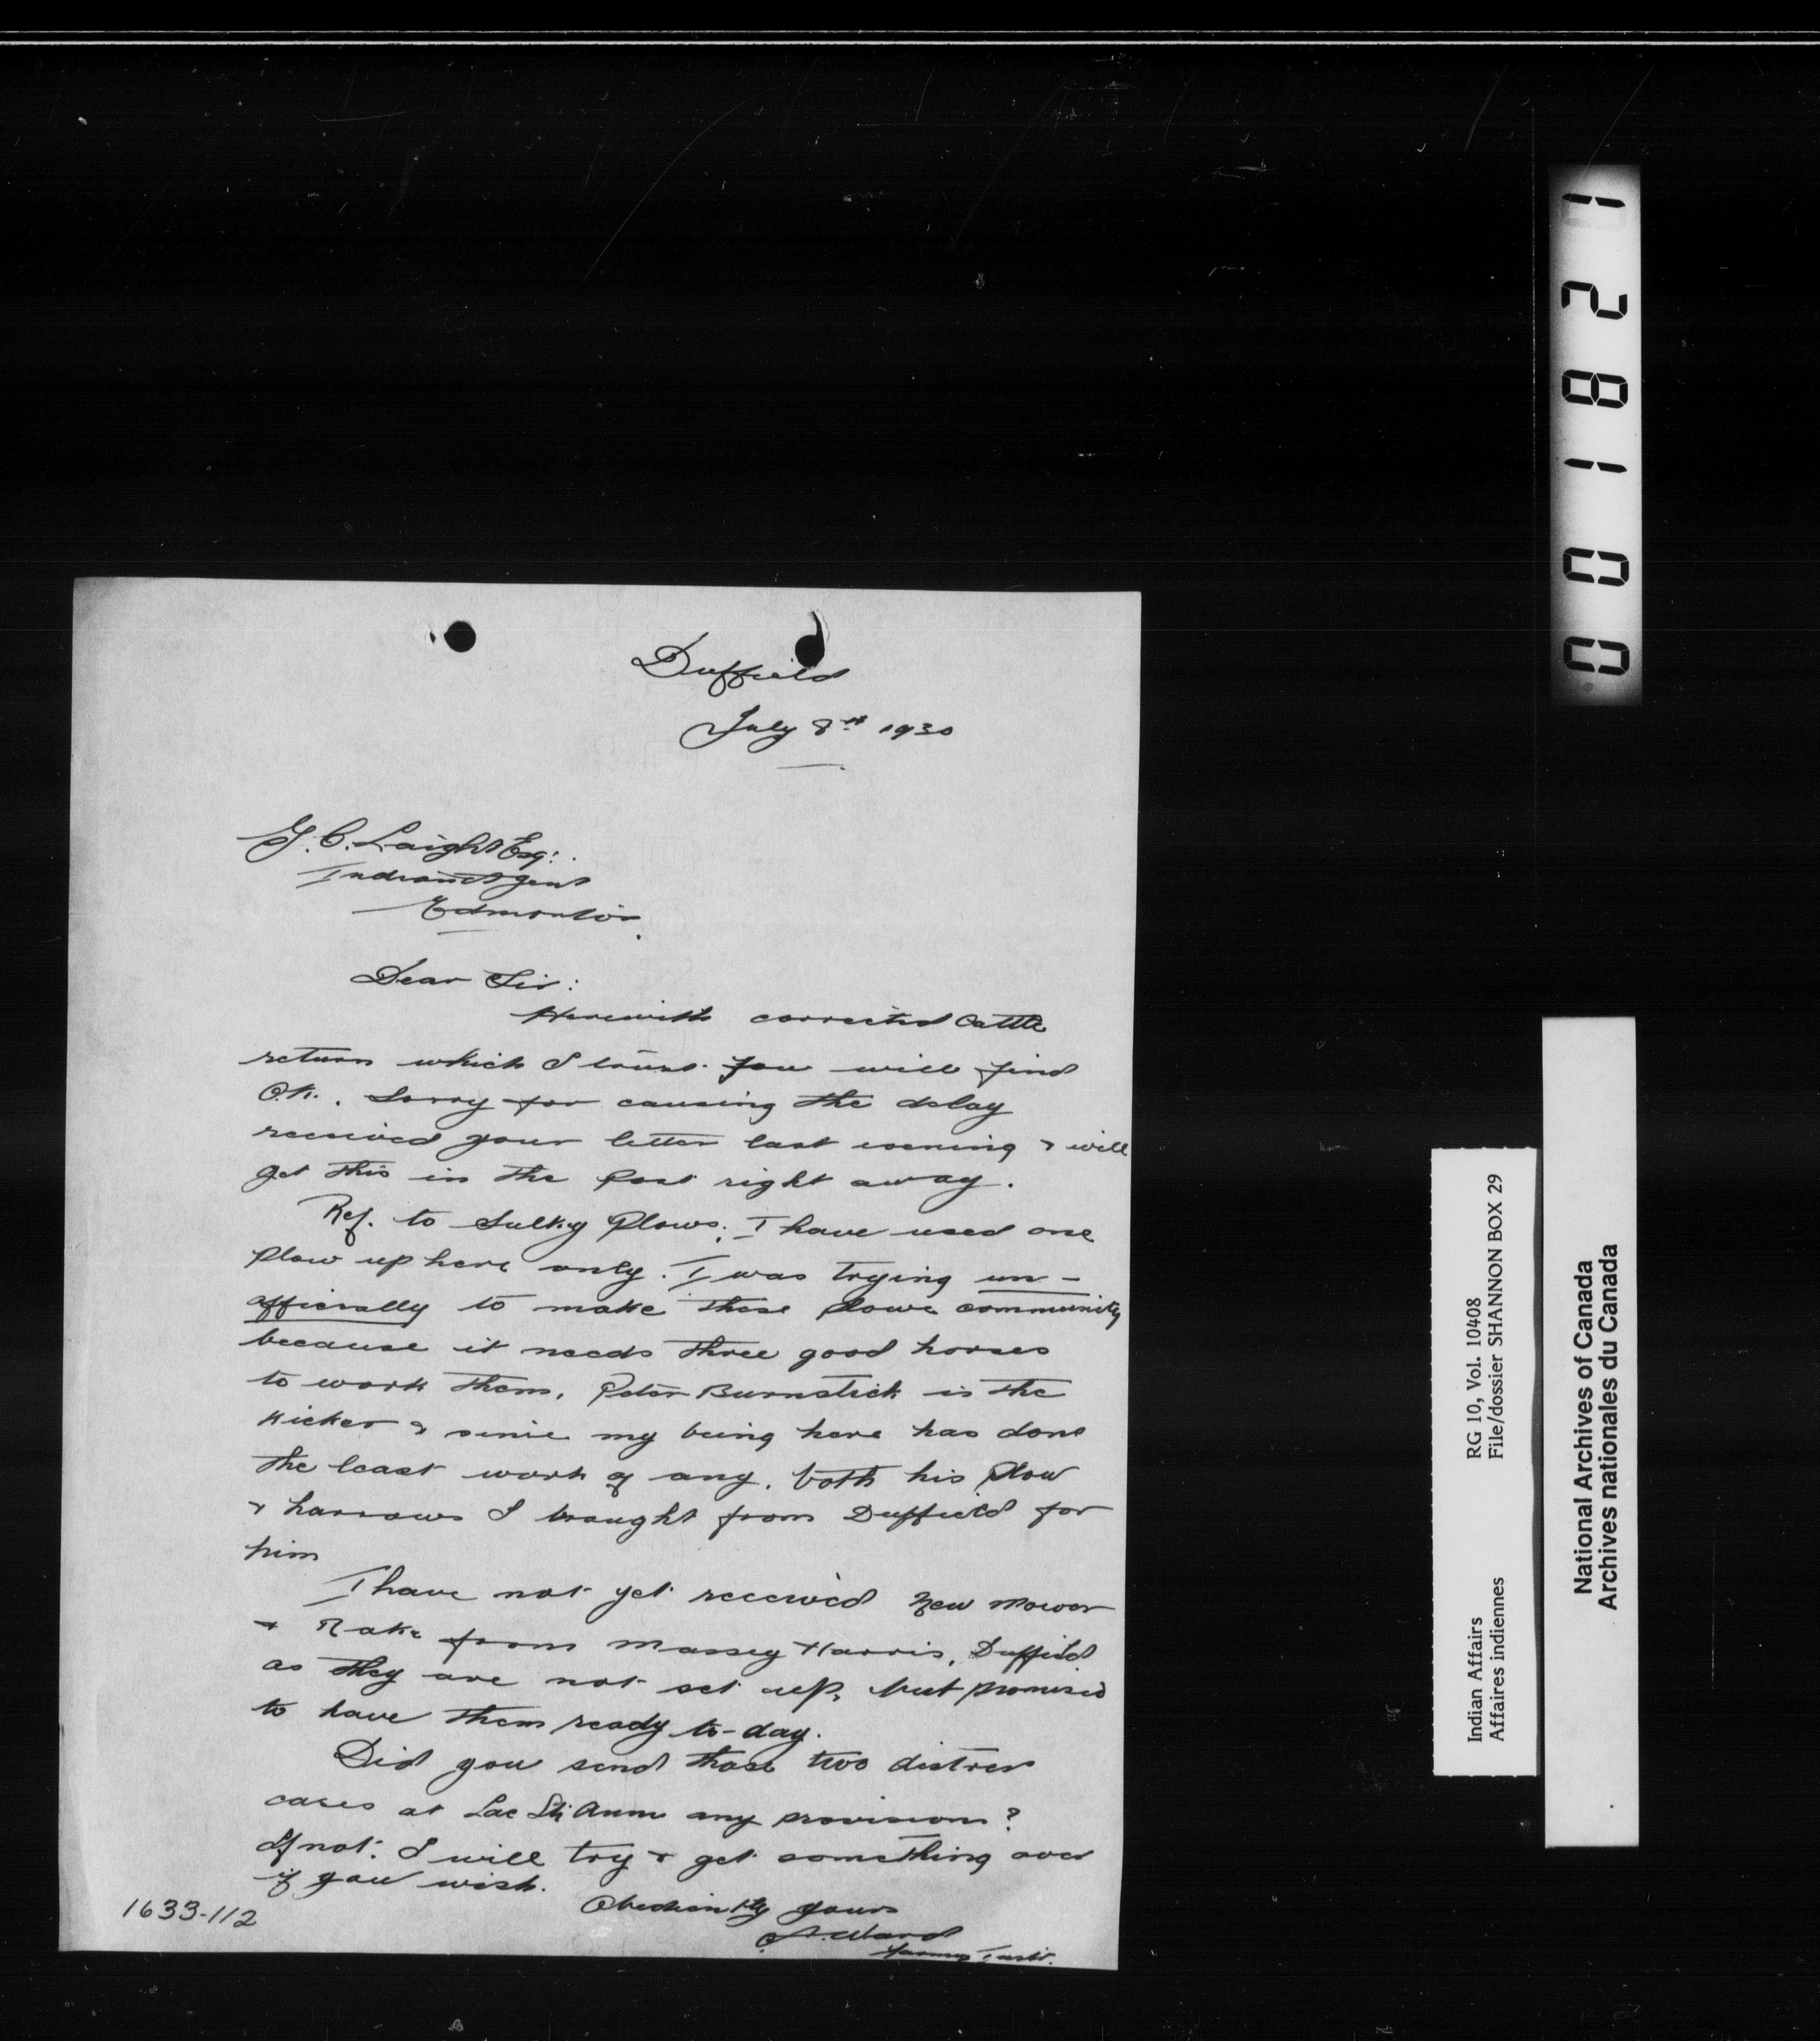 Duffield
July 8th 1930
G. C. Laight Esq.
Indian Agent
Edmonton.
Dear Sir:
Herewith corrected Cattle
return which I trust you will find
O.K. Sorry for causing the delay
received your letter last evening & will
get this in the post right away.
Ref. to Sulky Plows. I have used one
Plow up here only. I was trying un-
officially to make these plows community
because it needs three good horses
to work them. Peter Burnstick is the
kicker & since my being here has done
the least work of any. both his plow
& harrows I brought from Duffield for
him
I have not yet received new mower
& Rake from Massey Harris, Duffield
as they are not set up, but promised
to have them ready to-day.
Did you send those two distress
cases at Lac Ste Anne any provisions?
If not. I will try & get something over
if you wish.
Obediently yours
Ward
Farming Instr.
1633-112
001821
RG 10, Vol. 10408
File/dossier SHANNON BOX 29
Indian Affairs
Affaires indiennes
National Archives of Canada
Archives nationales du Canada